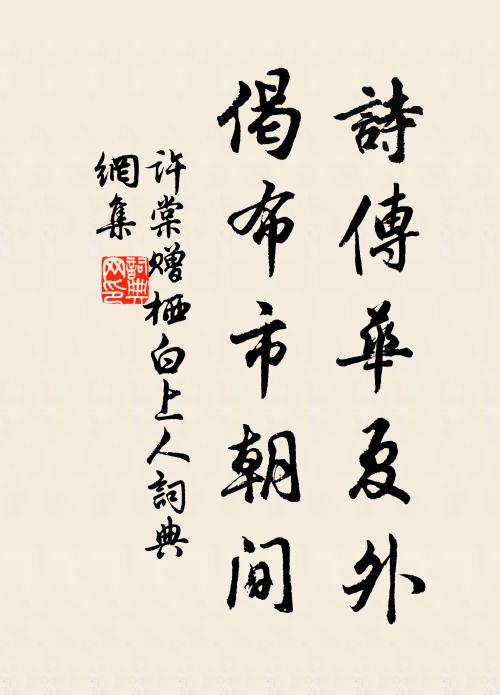 詩傳華夏外
偈布市朝间
許棠赠栖白上人詞典
網集
詞典
网印